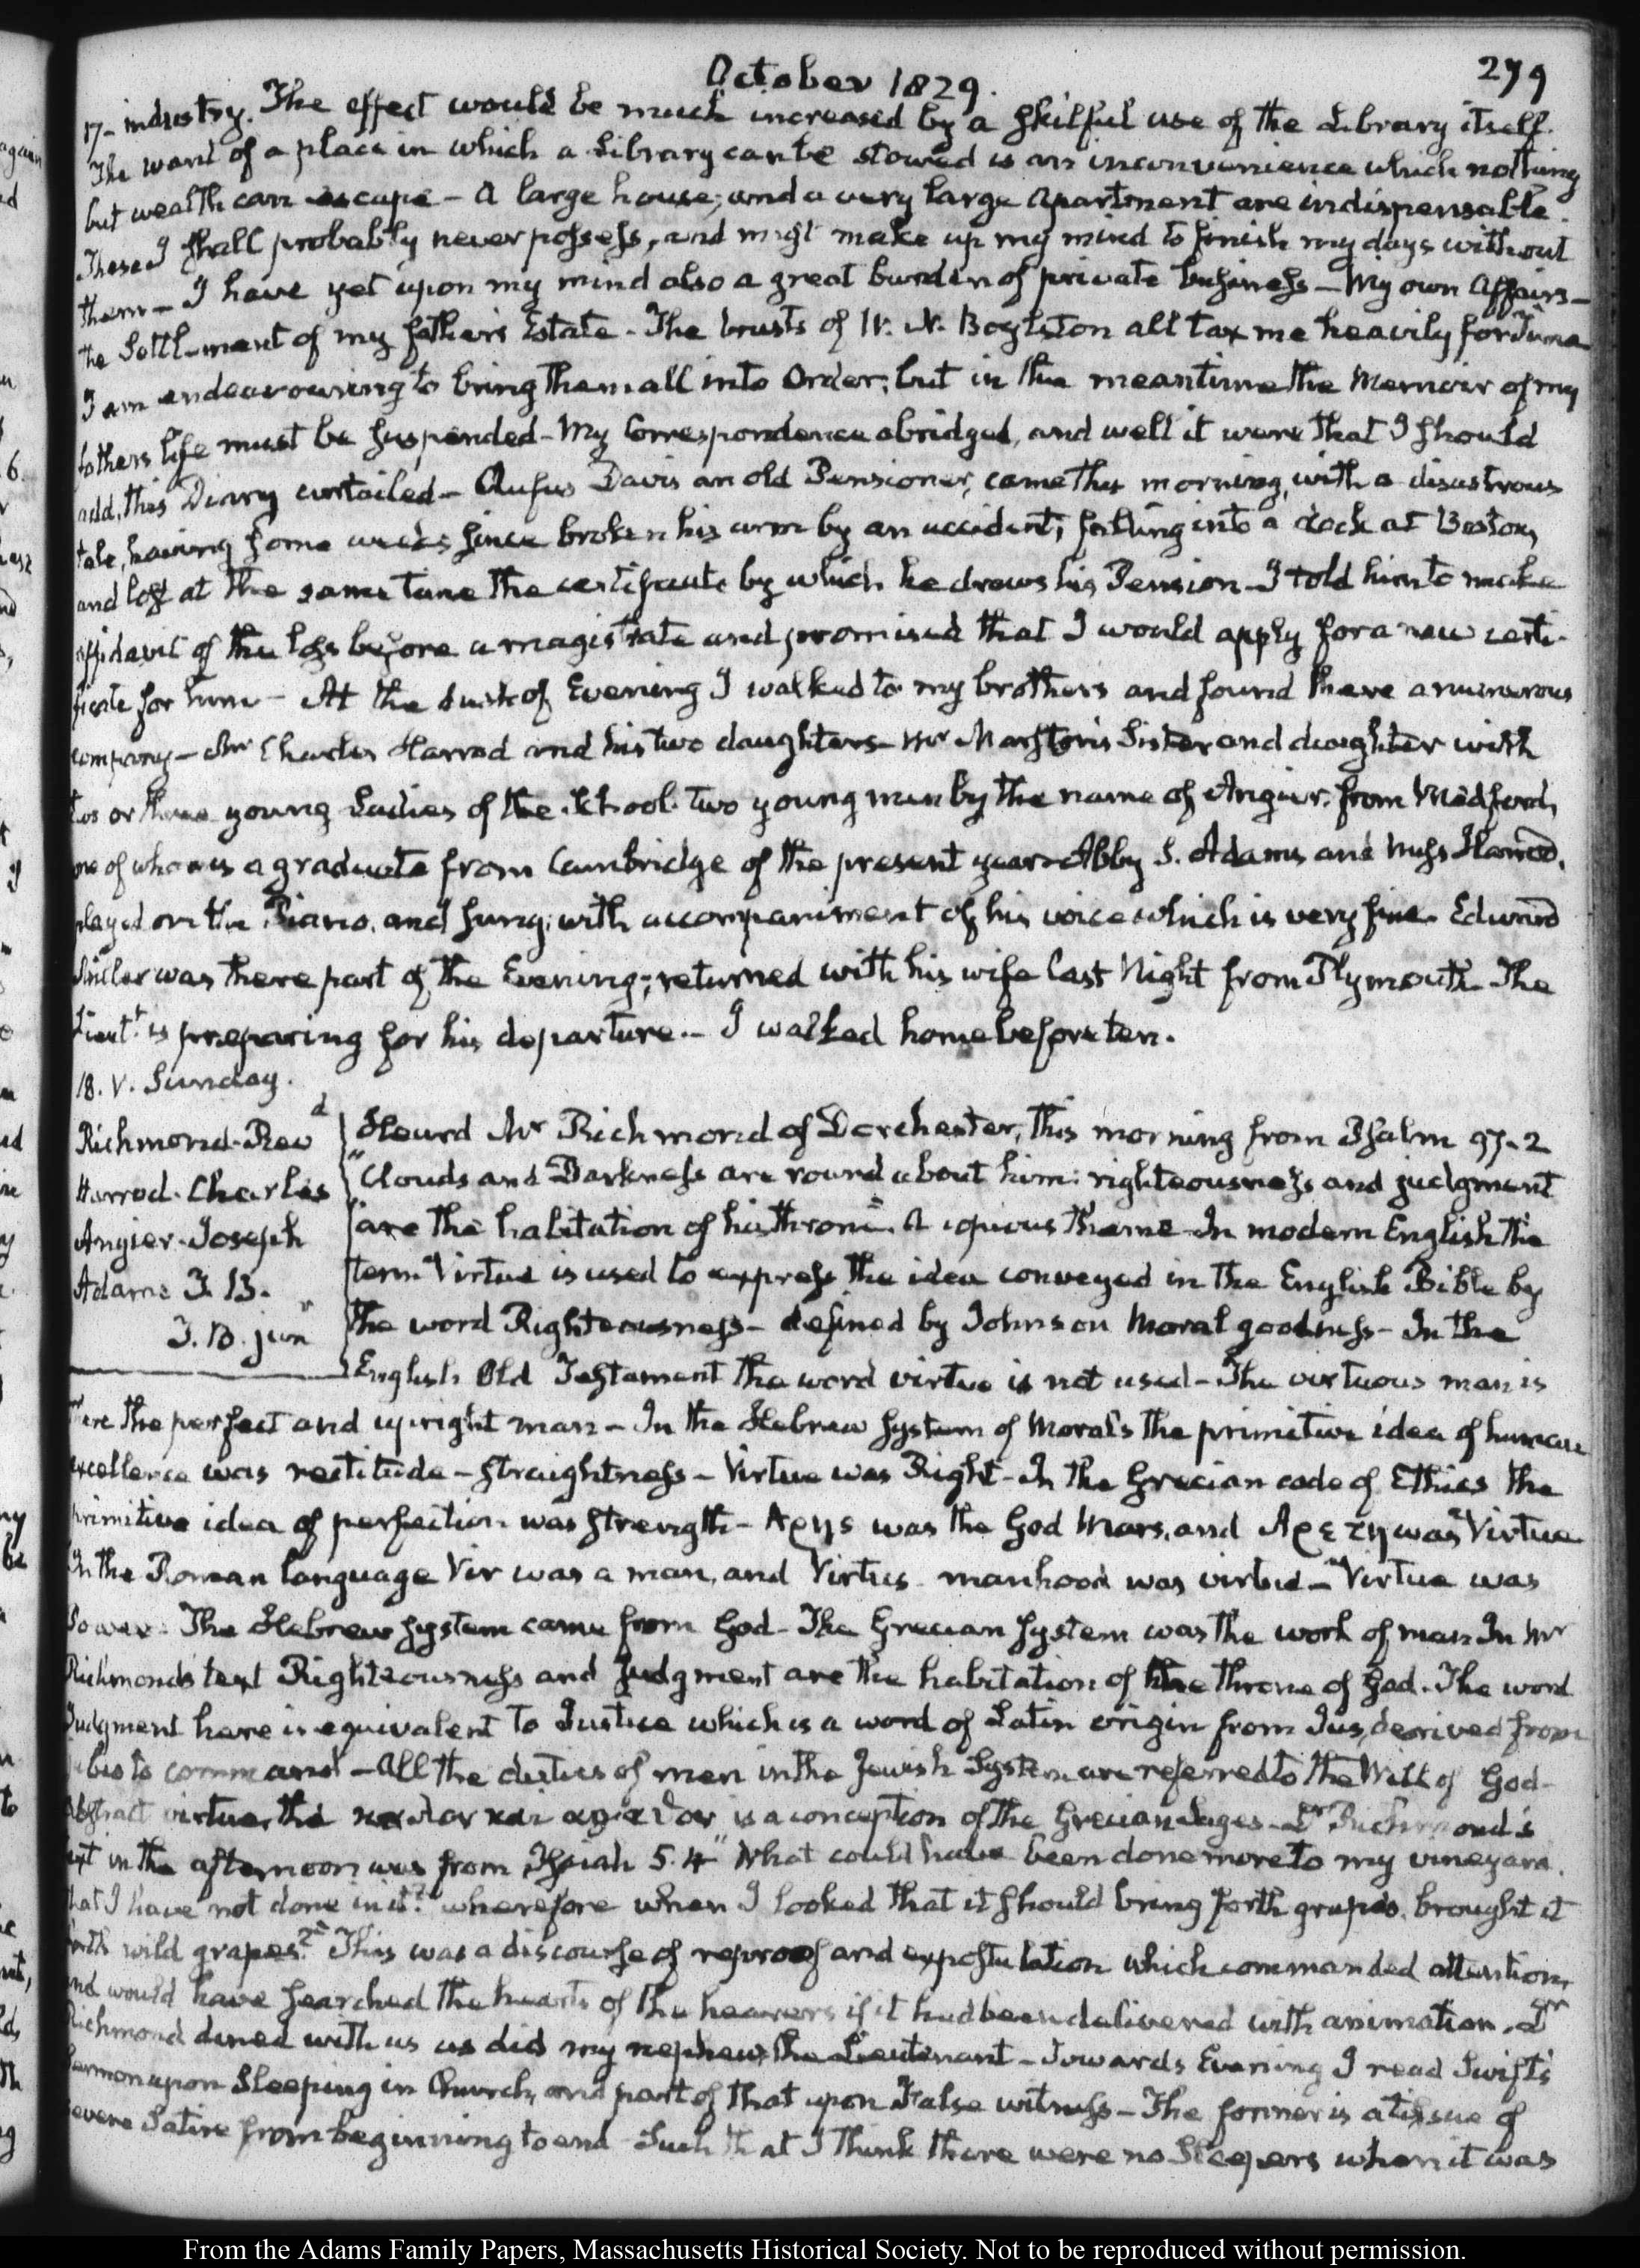 October 1829.
279
17- industry. The effect would be much increased by a skilful use of the Library itself.
The want of a place in which a Library can be stowed is an inconvenience which nothing
but wealth can escape - A large house; and a very large apartment are indispensable.
These I shall probably never possess, and must make up my mind to finish my days without
them - I have yet upon my mind also a great burden of private business - My own affairs -
the Settlement of my fathers Estate - The trusts of W. N. Boylston all tax me heavily for Time
I am endeavouring to bring them all into Order; but in the meantime the Memoir of my
fathers life must be suspended - My Correspondence abridged, and well it were that I should
add, this Diary curtailed - Rufus Davis an old Pensioner, came this morning, with a disastrous
tale, having some weeks since broken his arm by an accident; falling into a dock at Boston,
and lost at the same time the certificate by which he draws his Pension - I told him to make
affidavit of the loss before a magistrate and promised that I would apply for a new certi-
ficate for him - At the dusk of Evening I walked to my brothers and found there a numerous
company - Mr Charles Harrod and his two daughters - Mr Marston's Sister and daughter with
two or three young Ladies of the School. two young men by the name of Angier, from Medford,
one of whom is a graduate from Cambridge of the present year - Abby S. Adams and Miss Harrod,
played on the Piano, and sung; with accompaniment of his voice which is very fine - Edward
Miller was there part of the Evening; returned with his wife last Night from Plymouth - The
Lieutt is preparing for his departure. - I walked home before ten.
18. V. Sunday.
Richmond - Revd
Harrod - Charles
Angier - Joseph
Adams J. B.
" J. B. jun
Heard Mr Richmond of Dorchester, this morning from Psalm 97-2
"Clouds and Darkness are round about him: righteousness and judgment
"are the habitation of his throne". A copious theme - In modern English the
term Virtue is used to express the idea conveyed in the English Bible by
the word Righteousness - defined by Johnson Moral goodness - In the
English Old Testament the word virtue is not used - The virtuous man is
there the perfect and upright man - In the Hebrew System of Morals the primitive idea of human
excellence was rectitude - straightness - Virtue was Right - In the Grecian code of Ethics the
primitive idea of perfection was strength - Αρης was the God Mars, and Αρετη was Virtue
In the Roman language Vir was a man, and Virtus - manhood was virtue - Virtue was
Power - The Hebrew system came from God - The Grecian system was the work of man In Mr
Richmonds text Righteousness and Judgment are the habitation of the throne of God. The word
Judgment here is equivalent to Justice which is a word of Latin origin from Jus, derived from
jubeo to command - All the duties of men in the Jewish System are referred to the Will of God -
Abstract virtue, the καλον και αγαθον is a conception of the Grecian Sages - Mr Richmond's
text in the afternoon was from Isaiah 5. 4 "What could have been done more to my vineyard.
that I have not done in it? wherefore when I looked that it should bring forth grapes, brought it
forth wild grapes?" This was a discourse of reproof and expostulation which commanded attention,
and would have searched the hearts of the hearers if it had been delivered with animation. Mr
Richmond dined with us as did my nephew, the Lieutenant - Towards Evening I read Swift's
Sermon upon Sleeping in Church, and part of that upon False witness - The former is a tissue of
severe Satire from beginning to end - Such that I think there were no Sleepers when it was
From the Adams Family Papers, Massachusetts Historical Society. Not to be reproduced without permission.